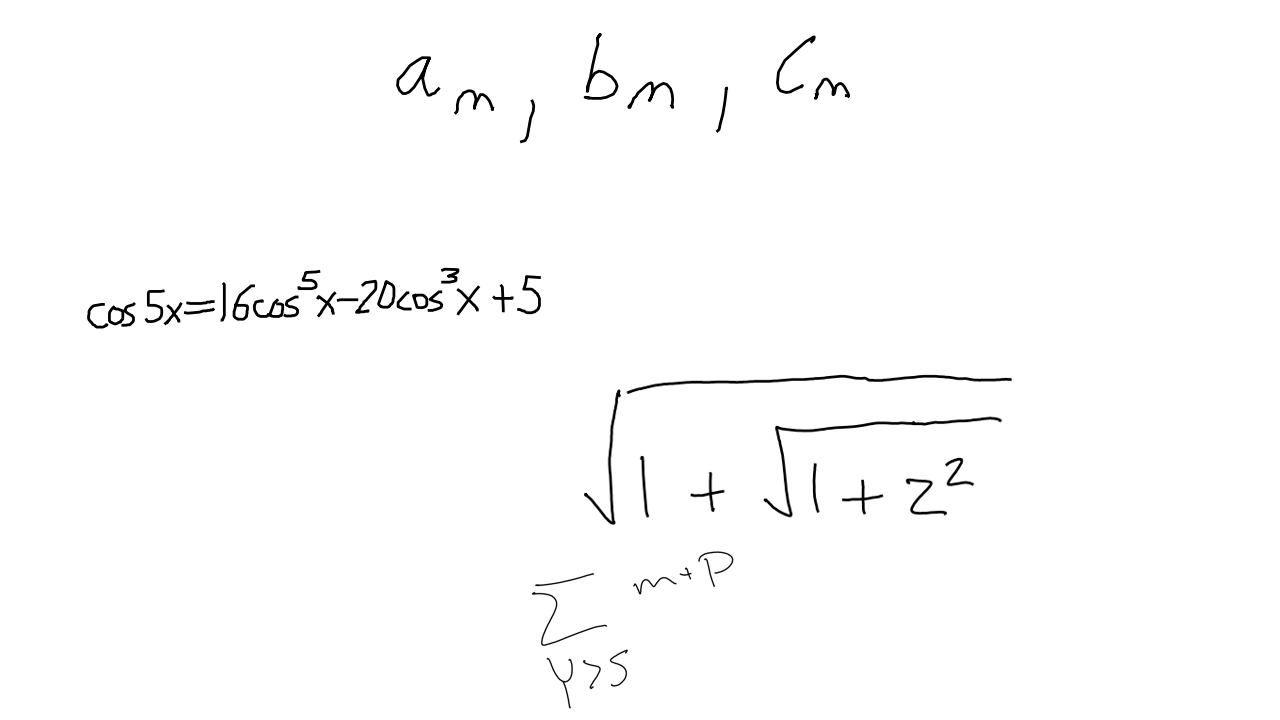 a_m, b_m, c_m
cos 5x = 16cos^5 x - 20cos^3 x + 5
\sqrt{1 + \sqrt{1 + z^2}}
\sum_{y>5}^{m+p}